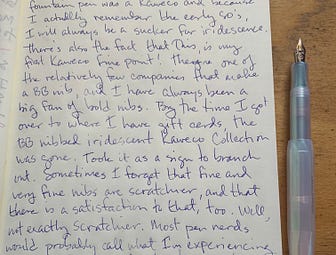 fountain pen was a Kaweco and because
I actually remember the early 90's,
I will always be a sucker for iridescence.
There's also the fact that this, is my
first Kaweco fine point! They're one of
the relatively few companies that make
a BB nib, and I have always been a
big fan of bold nibs. By the time I got
over to where I have gift cards, the
BB nibbed iridescent Kaweco Collection
was gone. Took it as a sign to branch
out. Sometimes I forget that fine and
very fine nibs are scratchier, and that
there is a satisfaction to that, too. Well,
not exactly scratchier. Most pen nerds
would probably call what I'm experiencing